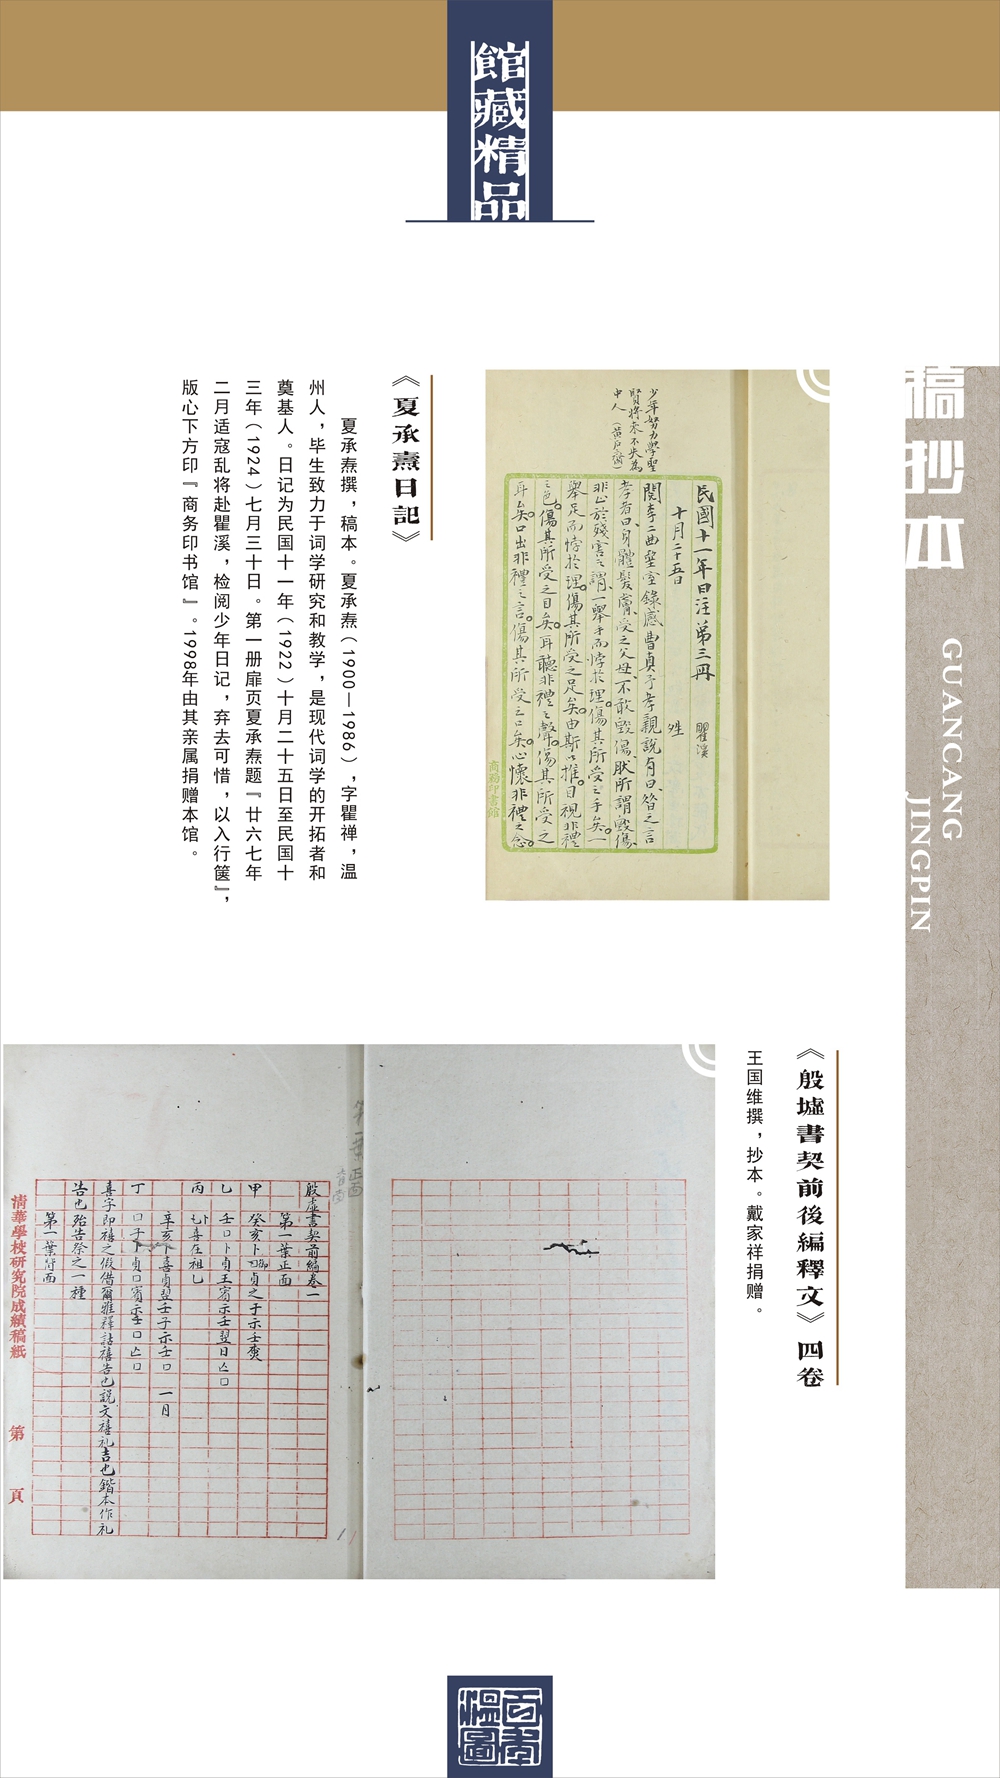 館藏精品
稿抄本
GUANCANG
JINGPIN
少年努力學聖
賢將來不失為
中人（黃石齋）
民國十一年日注第三冊 瞿溪
十月二十五日 姓
閱李二曲堊室錄感曹真予孝親說有曰咎之言
孝者曰身體髮膚受之父母不敢毀傷朕所謂毀傷
非止於殘害之謂一舉手而悖於理傷其所受之手矣一
舉足而悖於理傷其所受之足矣由斯以推目視非禮
之色傷其所受之目矣耳聽非禮之聲傷其所受之
耳矣口出非禮之言傷其所受之口矣心懷非禮之念
商務印書館
《夏承燾日記》
夏承焘撰，稿本。夏承焘（1900—1986），字瞿禅，温
州人，毕生致力于词学研究和教学，是现代词学的开拓者和
奠基人。日记为民国十一年（1922）十月二十五日至民国十
三年（1924）七月三十日。第一册扉页夏承焘题『廿六七年
二月适寇乱将赴瞿溪，检阅少年日记，弃去可惜，以入行箧』，
版心下方印『商务印书馆』。1998年由其亲属捐赠本馆。
《殷墟書契前後編釋文》四卷
王国维撰，抄本。戴家祥捐赠。
殷虛書契前編卷一
第一葉正面
甲 癸亥卜貞之于示壬
乙 壬口卜貞王賓示壬翌日亡口
丙 卜喜在祖乙
辛亥卜喜貞翌壬子示壬口 一月
丁 口子卜貞口賓示壬口亡口
喜字即禧之假借爾雅釋詁禧告也說文禧礼吉也鍇本作礼
告也殆告祭之一種
第一葉背面
清華學校研究院成績稿紙 第 頁
百年溫圖